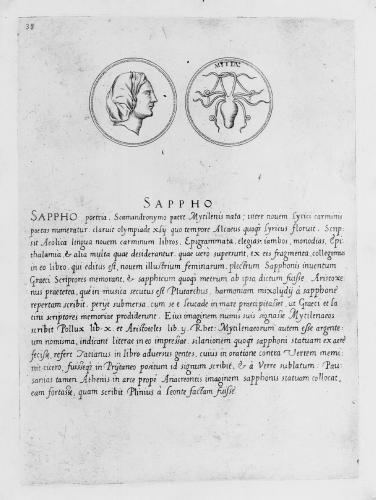 38
MYTIΛ
SAPPHO
SAPPHO poetria, Scamandronymo patre Mytilenis nata; inter nouem Lyrici carminis
poetas numeratur. claruit olympiade xlij quo tempore Alcaeus quoq; Lyricus floruit. Scrip-
sit Aeolica lingua nouem carminum libros, Epigrammata, elegias, iambos, monodias, Epi-
thalamia, & alia multa quae desiderantur. quae vero supersunt, ex eis fragmenta, collegimus
in eo libro, qui editus est, nouem illustrium feminarum, plectrum Sapphonis inuentum
Graeci Scriptores memorant, & sapphicum quoq; metrum ab ipsa dictum fuisse. Aristoxe-
nus praeterea, que in musica secutus est Plutarchus, harmoniam mixolydij à sapphone
repertam scribit. perijt submersa, cum se è leucade in mare praecipitasset, ut Graeci et la-
tini scriptores memoriae prodiderunt. Eius imaginem numis suis signasse Mytilenaeos
scribit Pollux lib. x. et Aristoteles lib. y. Rhet: Mytilenaeorum autem esse argente-
um nomisma, indicant literae in eo impressae. silanionem quoq; sapphonis statuam ex aere
fecisse, refert Tatianus in libro aduersus gentes, cuius in oratione contra Verrem memi-
nit cicero, fuisseq; in Prytaneo positum id signum scribit, & à Verre sublatum: Pau-
sanias tamen Athenis in arce prope Anacreontis imaginem sapphonis statuam collocat,
eam fortasse, quam scribit Plinius à Leonte factam fuisse